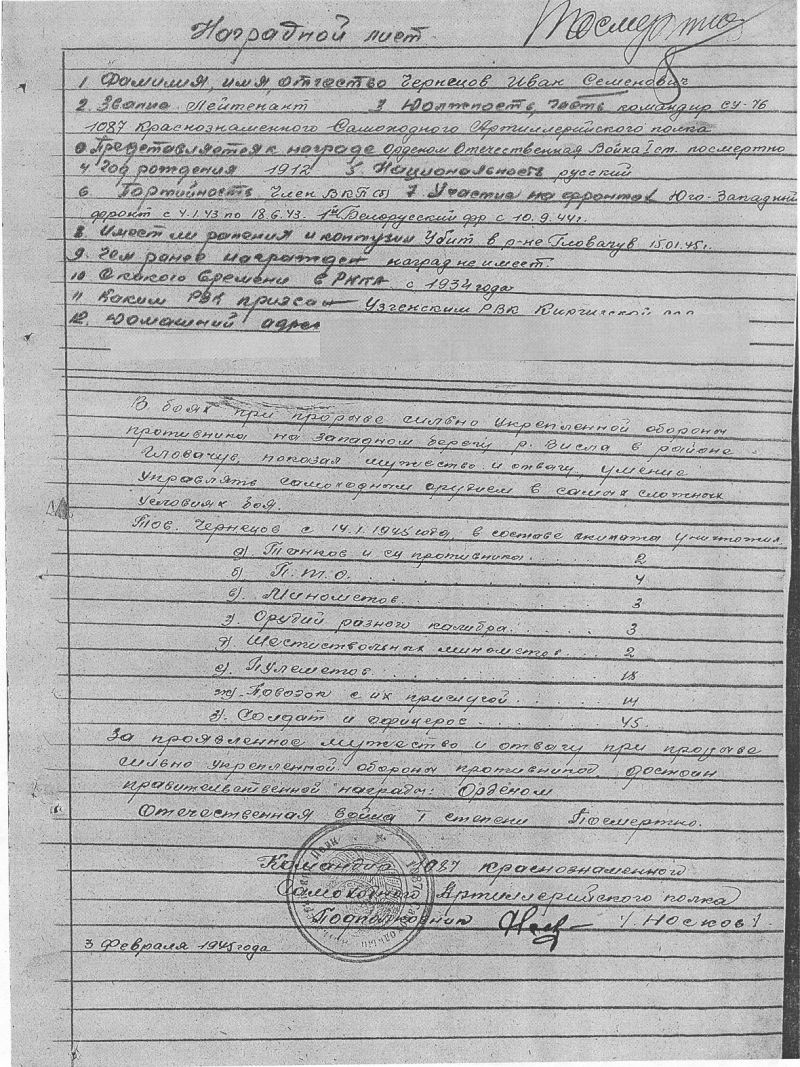 Посмертно
Наградной лист
1 Фамилия, имя, отчество Чернецов Иван Семенович
2. Звание Лейтенант 3 Должность, часть командир СУ-76
1087 Краснознаменного Самоходного Артиллерийского полка
Представляется к награде Орденом Отечественная Война I ст. посмертно
4 Год рождения 1912 5. Национальность русский
6. Партийность Член ВКП(б) 7. Участие на фронтах Юго-Западний
фронт с 4.1.43 по 18.6.43. 1й Белорусский фр с 10.9.44г.
8. Имеет ли ранения и контузии Убит в р-не Гловачув 15.01.45г.
9. Чем ранее награжден наград не имеет.
10 С какого времени в РККА с 1934 года
11 Каким РВК призван Узгенским РВК Киргизской
12. Домашний адрес
В боях при прорыве сильно укрепленной обороны
противника на западном берегу р. Висла в районе
Гловачув, показал мужество и отвагу, умение
управлять самоходным орудием в самых сложных
условиях боя.
Тов. Чернецов с 14.1.1945 года, в составе экипажа уничтожил
а). Танков и су противника..... 2
б). П.Т.О. ..... 4
в). Минометов..... 3
г). Орудий разного калибра..... 3
д). Шестиствольных минометов.... 2
е). Пулеметов..... 18
ж). Повозок с их прислугой.... 14
з). Солдат и офицеров..... 45.
За проявленное мужество и отвагу при прорыве
сильно укрепленной обороны противника, достоин
правительственной награды: Орденом
Отечественная война I степени Посмертно.
Командир 1087 краснознаменного
Самоходного Артиллерийского полка
Подполковник /Носков/
3 февраля 1945 года